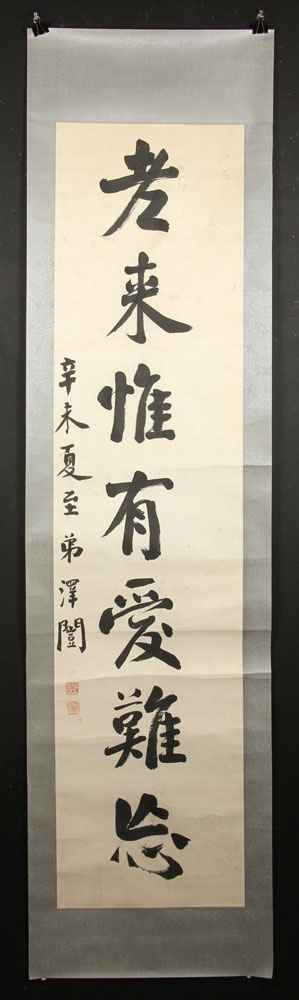 老来惟有愛難忘
辛未夏至弟澤闓